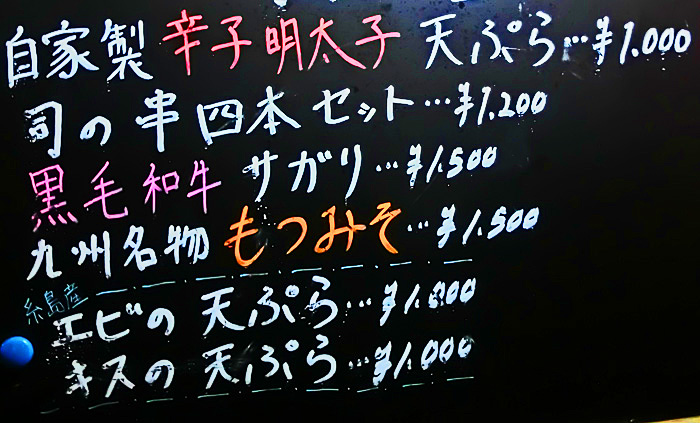 自家製 辛子明太子 天ぷら…¥1.000
司の串四本セット…¥1.200
黒毛和牛 サガリ…¥1.500
九州名物 もつみそ…¥1.500
糸島産
エビの天ぷら…¥1.000
キスの天ぷら…¥1.000